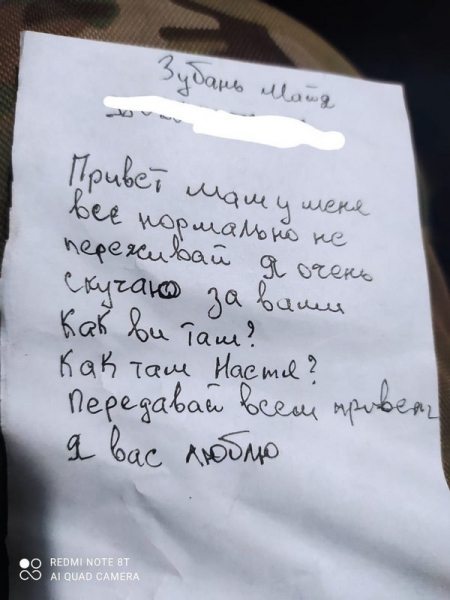 Зубань Матя
Привет мам у меня
все нормально не
переживай я очень
скучаю за вами
Как ви там?
Как там Настя?
Передавай всем привет
Я вас люблю
REDMI NOTE 8T
AI QUAD CAMERA